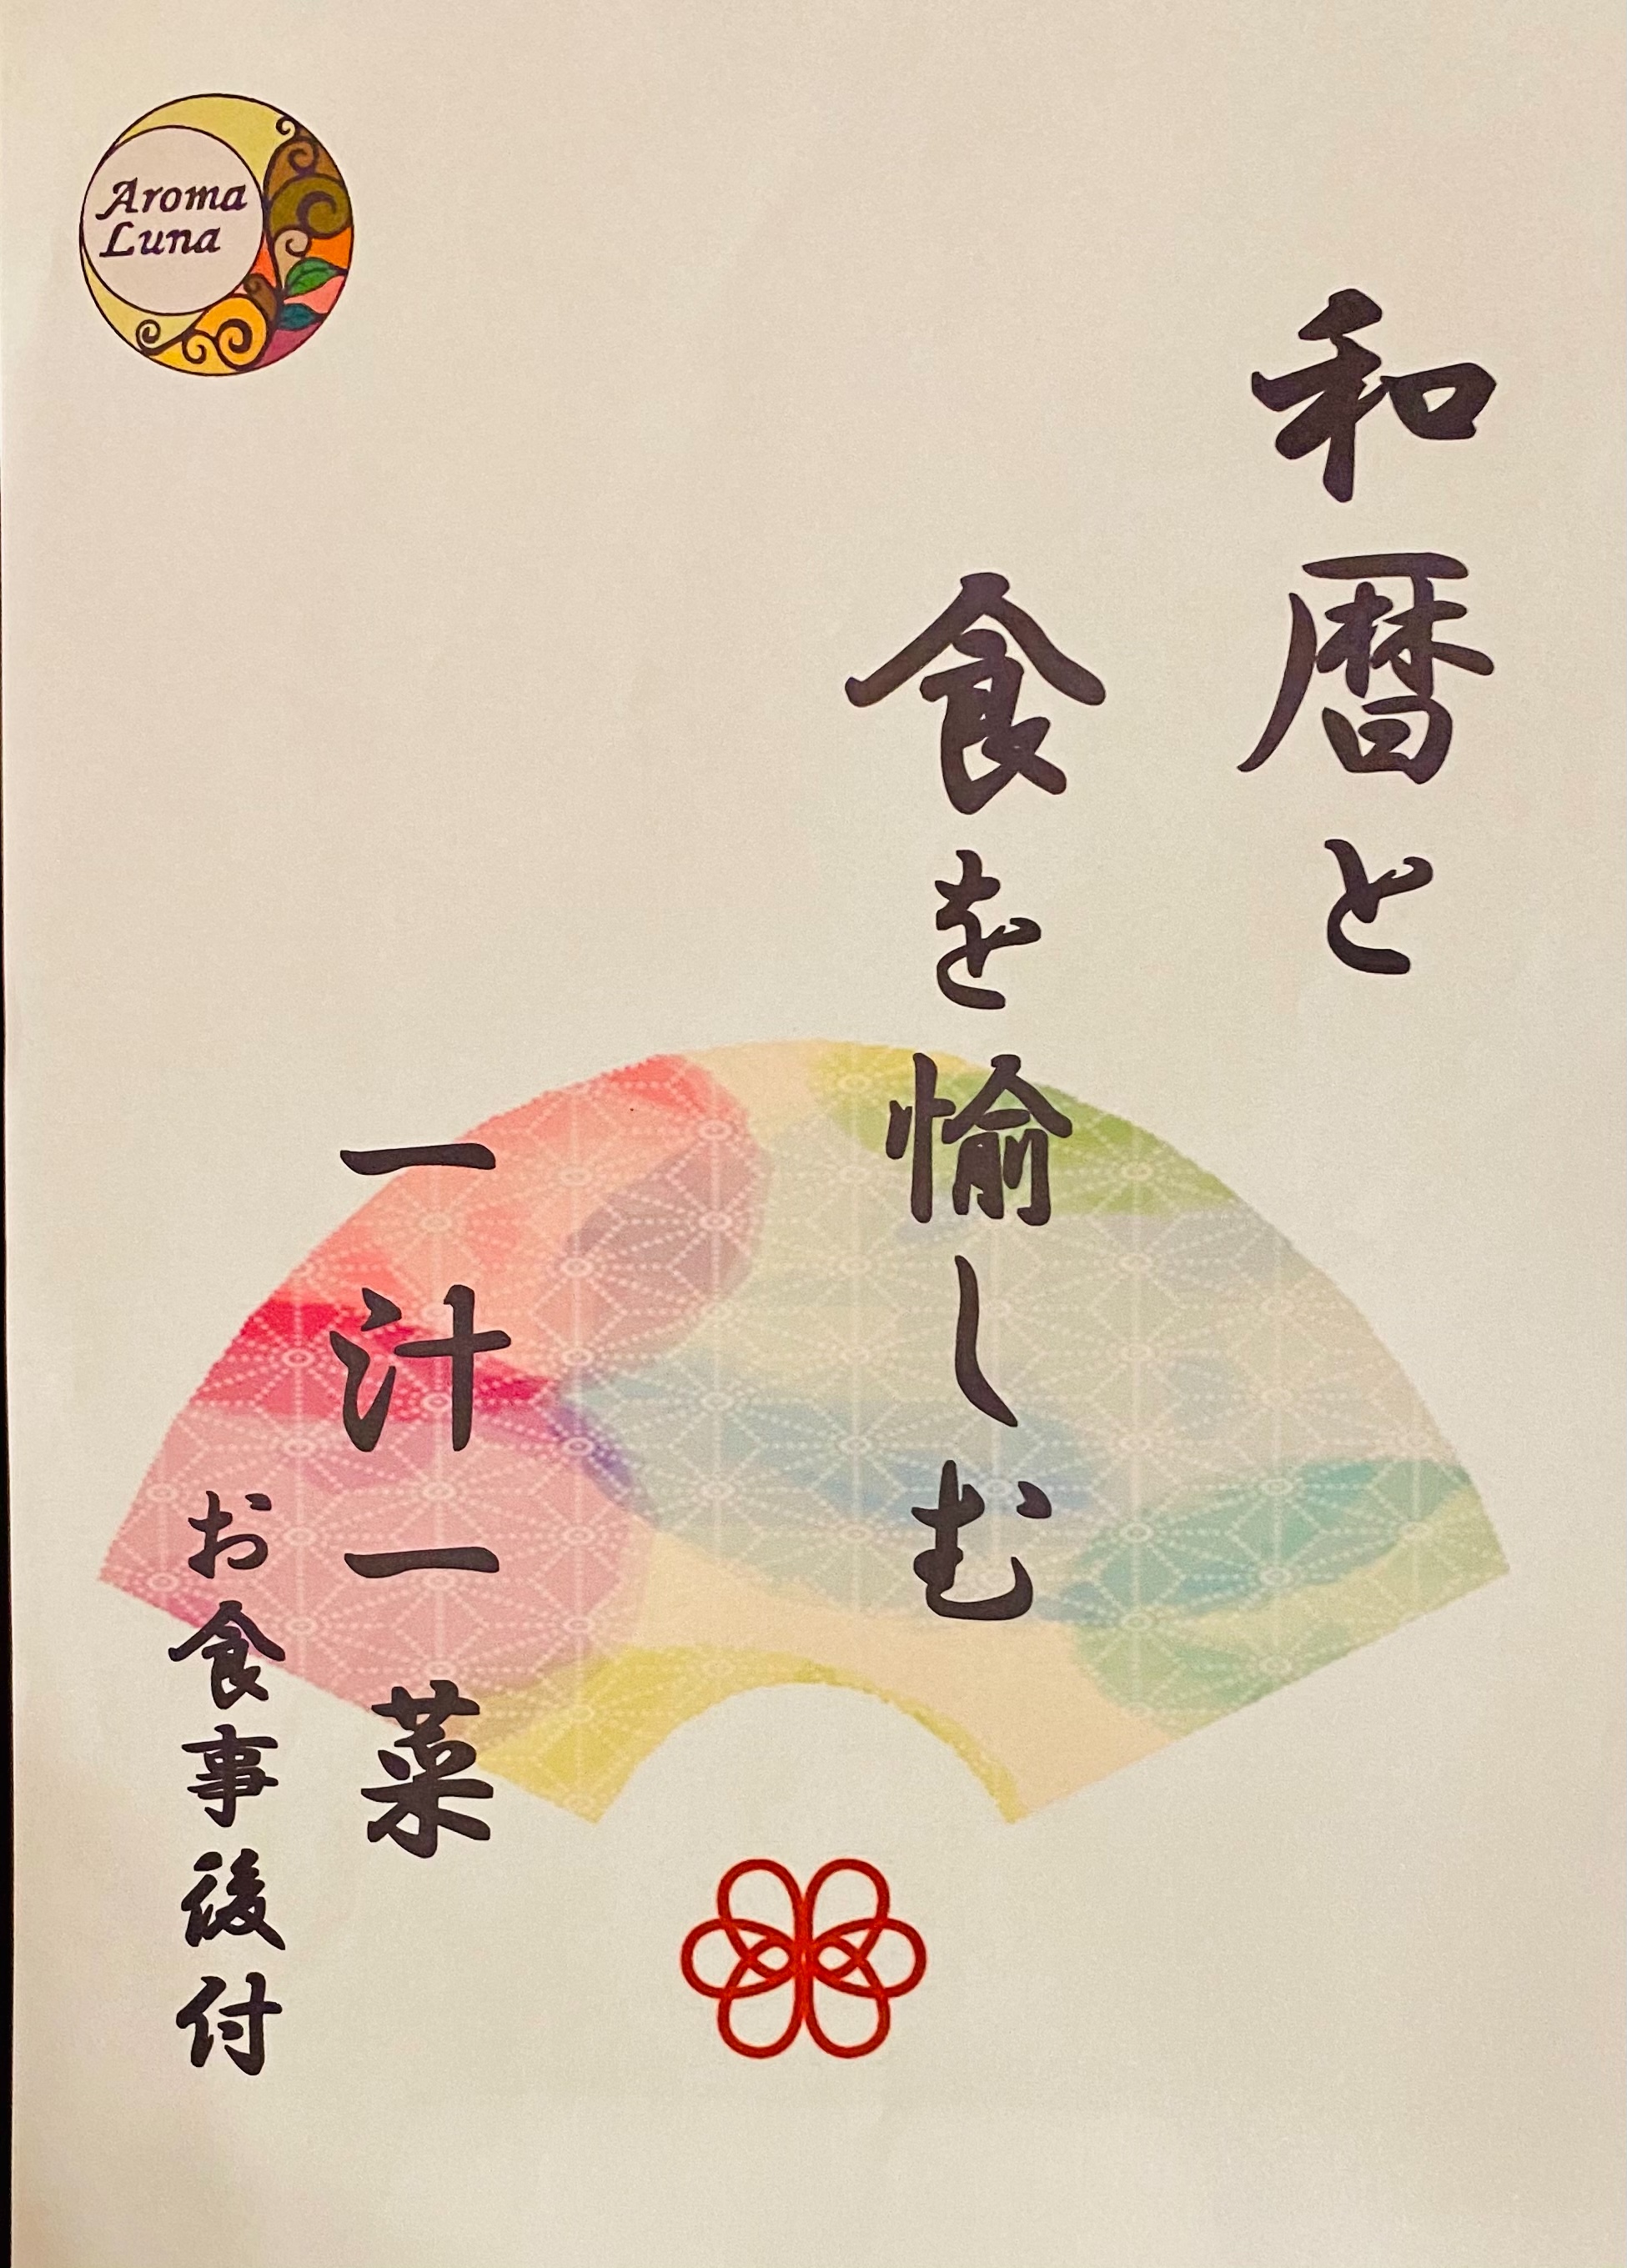 Aroma
Luna
和暦と
食を愉しむ
一汁一菜
お食事後付